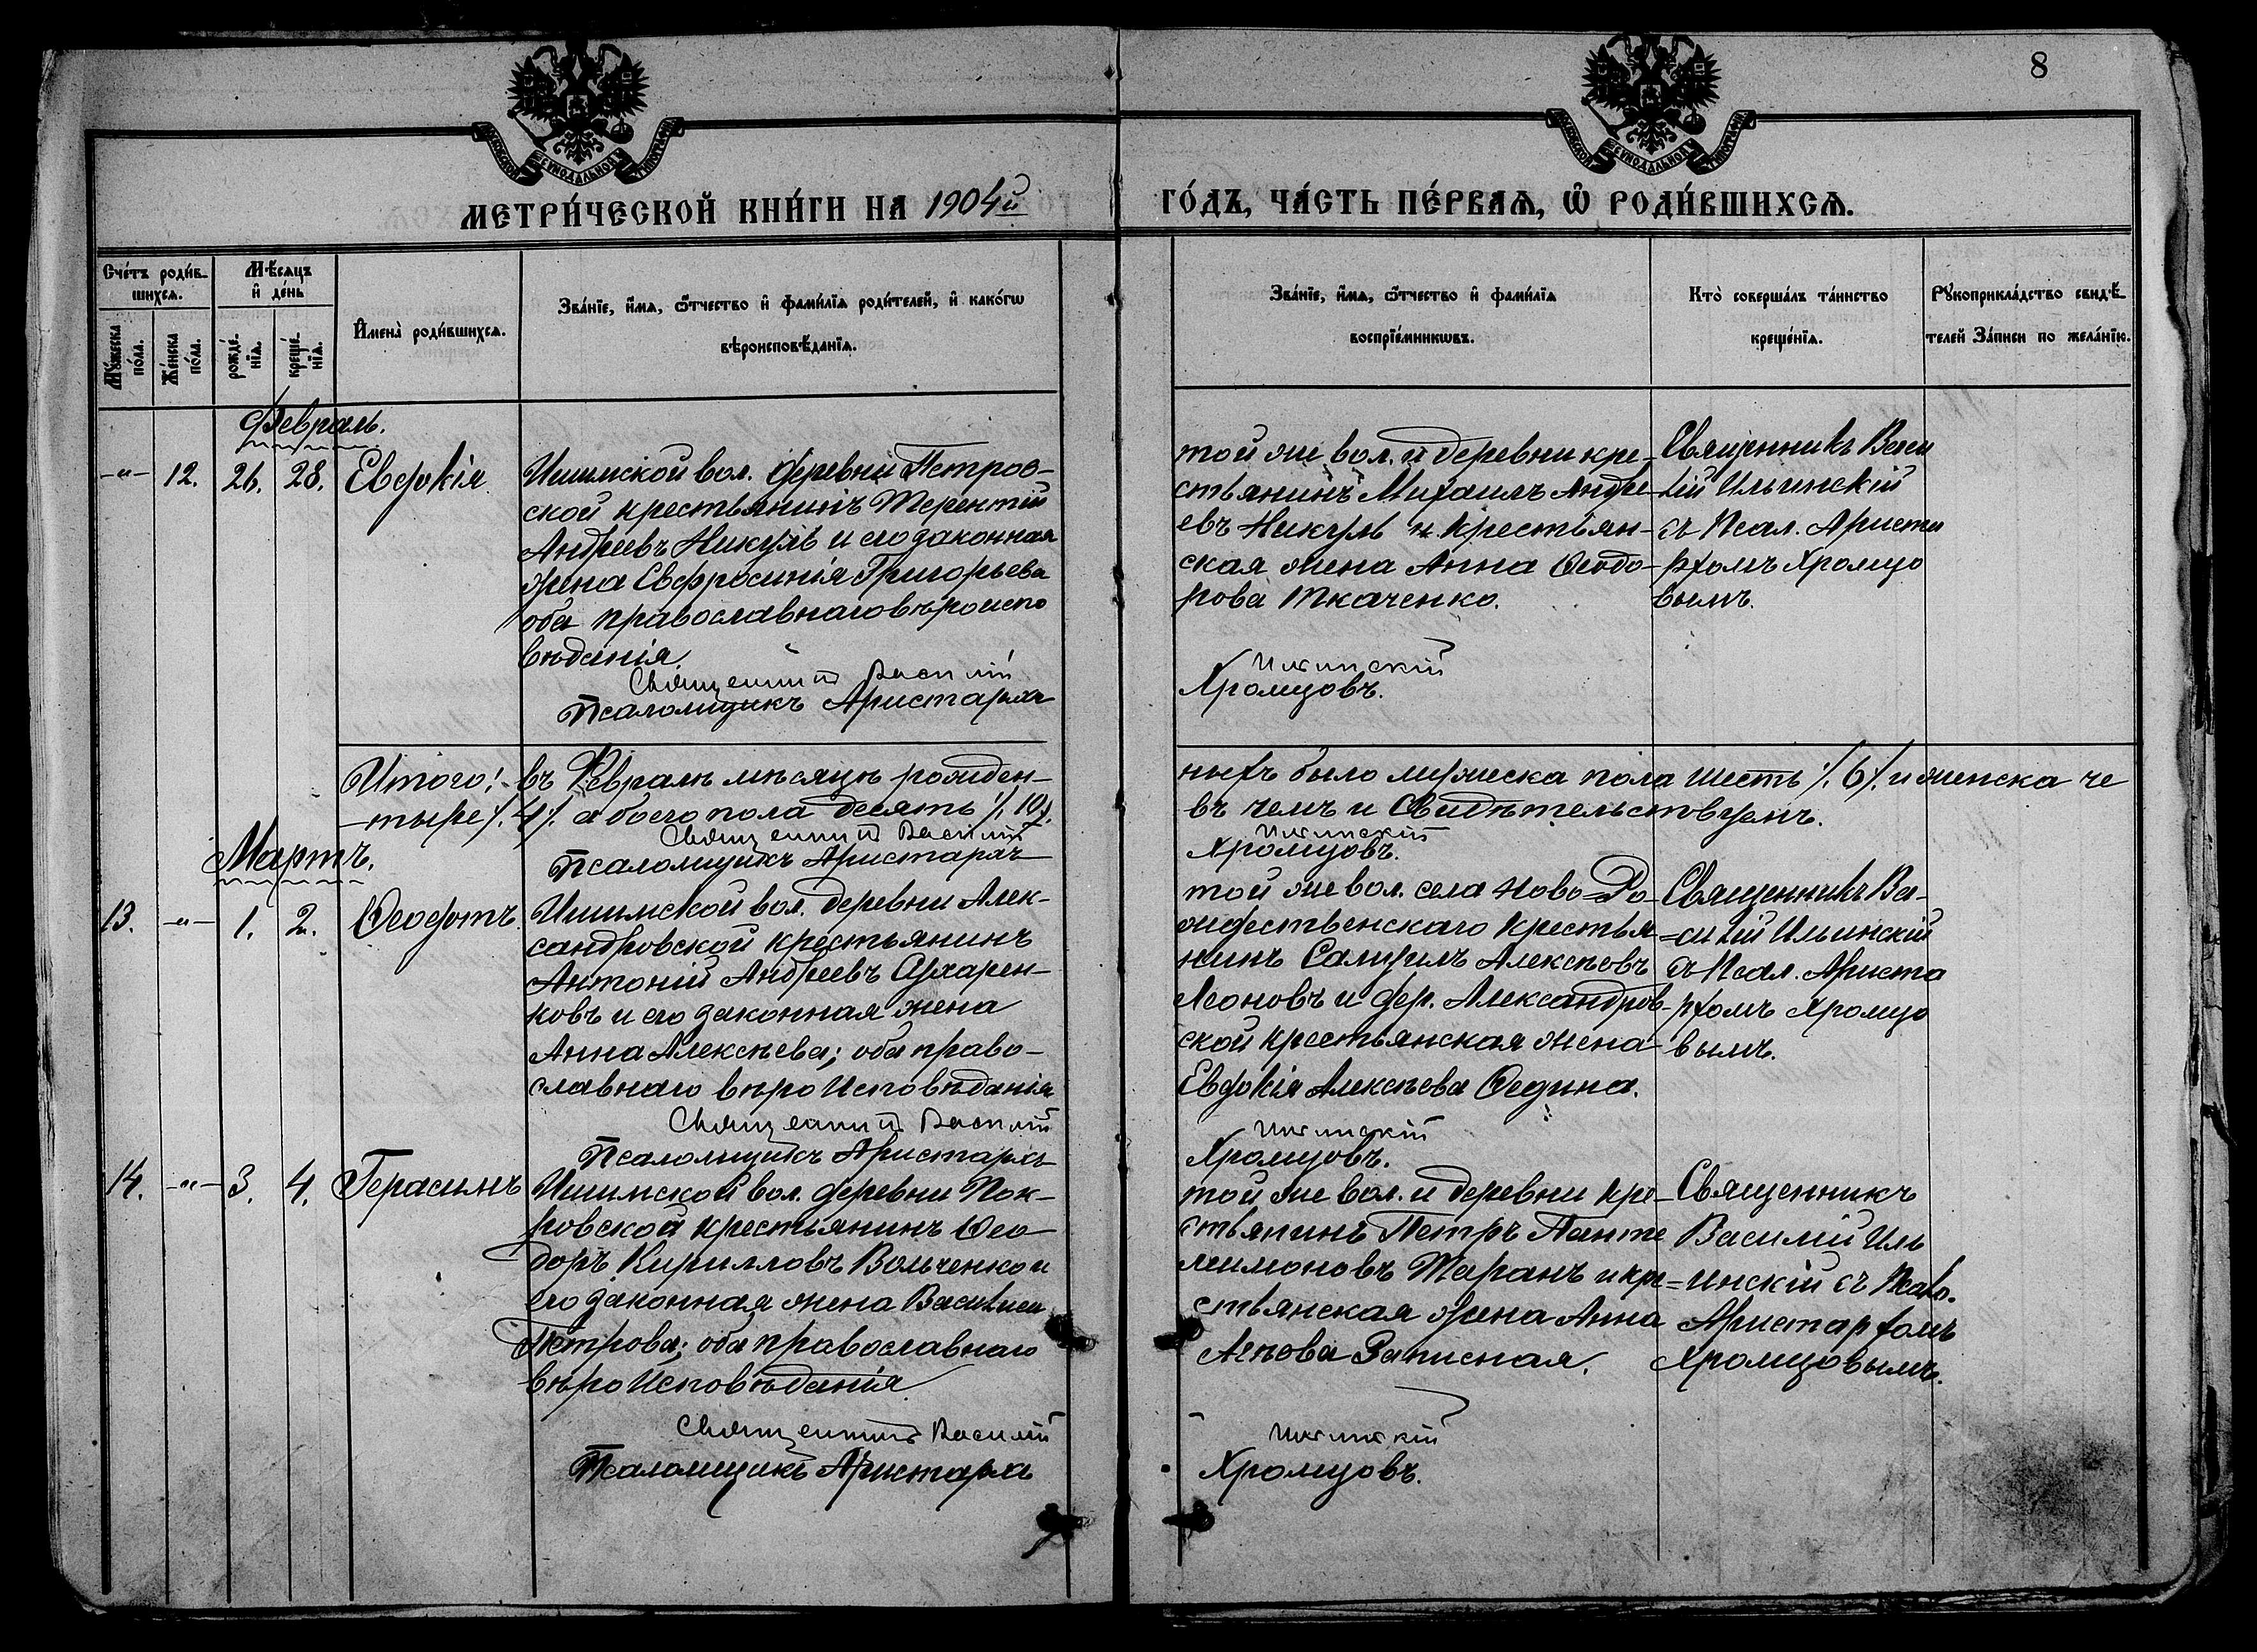 8
МОСКОВСКОЙ СѴНОДАЛЬНОЙ ТИПОГРАФІИ
МОСКОВСКОЙ СѴНОДАЛЬНОЙ ТИПОГРАФІИ
МЕТРИ́ЧЕСКОЙ КНИ́ГИ НА 1904й
ГО́ДЪ, ЧА́СТЬ ПЕ́РВАѦ, Ѽ РОДИ́ВШИХСѦ.
Сче́тъ роди́в-
шихсѧ.
Мѣ́сѧцъ
и҆ де́нь
Мꙋ́жеска
по́ла.
Же́нска
по́ла.
рожде́-
нїѧ.
креще́-
нїѧ.
И҆мена̀ роди́вшихсѧ.
Зва́нїе, и҆́мѧ, ѻ҆́тчество и҆ фами́лїѧ роди́телей, и҆ како́гѡ
вѣроисповѣ́данїѧ.
Зва́нїе, и҆́мѧ, ѻ҆́тчество и҆ фами́лїѧ
воспрїе́мникѡвъ.
Кто̀ соверша́лъ та́инство
креще́нїѧ.
Рꙋкоприкла́дство свидѣ́-
телей За́писи по жела́нїю.
Февраль.
-"- 12. 26. 28. Евдокія
Ишимской вол. деревни Петров-
ской крестьянинъ Терентій
Андреевъ Никуль и его законная
жена Евфросинія Григорьева
оба православнаго вѣроиспо
вѣданія.
Священникъ Василій
Псаломщикъ Аристархъ
той же вол. и деревни кре-
стьянинъ Михаилъ Андре
евъ Никуль и крестьян-
ская жена Анна Ѳеодо-
рова Ткаченко.
Ильинскій
Хромцовъ.
Священникъ Васи
лій Ильинскій
съ Псал. Арист
рхомъ Хромцо
вымъ.
Итого: въ Февралѣ мѣсяцѣ рожден-
-тыре /.4/. а обоего пола десять /.10/.
Священникъ Василій
Псаломщикъ Аристархъ
ныхъ было мужеска пола шесть /.6/. и женска че
въ чемъ и Свидѣтельствуемъ.
Ильинскій
Хромцовъ.
Мартъ.
13. -"- 1. 2. Ѳеодотъ
Ишимской вол. деревни Алек-
сандровской крестьянинъ
Антоній Андреевъ Сухарен-
ковъ и его законная жена
Анна Алексѣева; оба право-
славнаго вѣроисповѣданія
Священникъ Василій
Псаломщикъ Аристархъ
той же вол. села Ново=Ро-
ждественскаго крестья-
нинъ Самуилъ Алексѣевъ
Леоновъ и дер. Александров-
ской крестьянская жена
Евдокія Алексѣева Ѳедина.
Ильинскій
Хромцовъ.
Священникъ Ва-
=силій Ильинскій
съ Псал. Ариста
рхомъ Хромцо
вымъ.
14. -"- 3. 4. Герасимъ
Ишимской вол. деревни Пок-
ровской крестьянинъ Ѳео-
доръ Кирилловъ Вольченко и
его законная жена Василиса
Петрова; оба православнаго
вѣроисповѣданія
Священникъ Василій
Псаломщикъ Аристархъ
той же вол. и деревни кре-
стьянинъ Петръ Панте
леимоновъ Таранъ и кре=
стьянская жена Анна
Записная.
Ильинскій
Хромцовъ.
Священникъ
Василій Иль
инскій съ Псало.
Аристархомъ
Хромцовымъ.